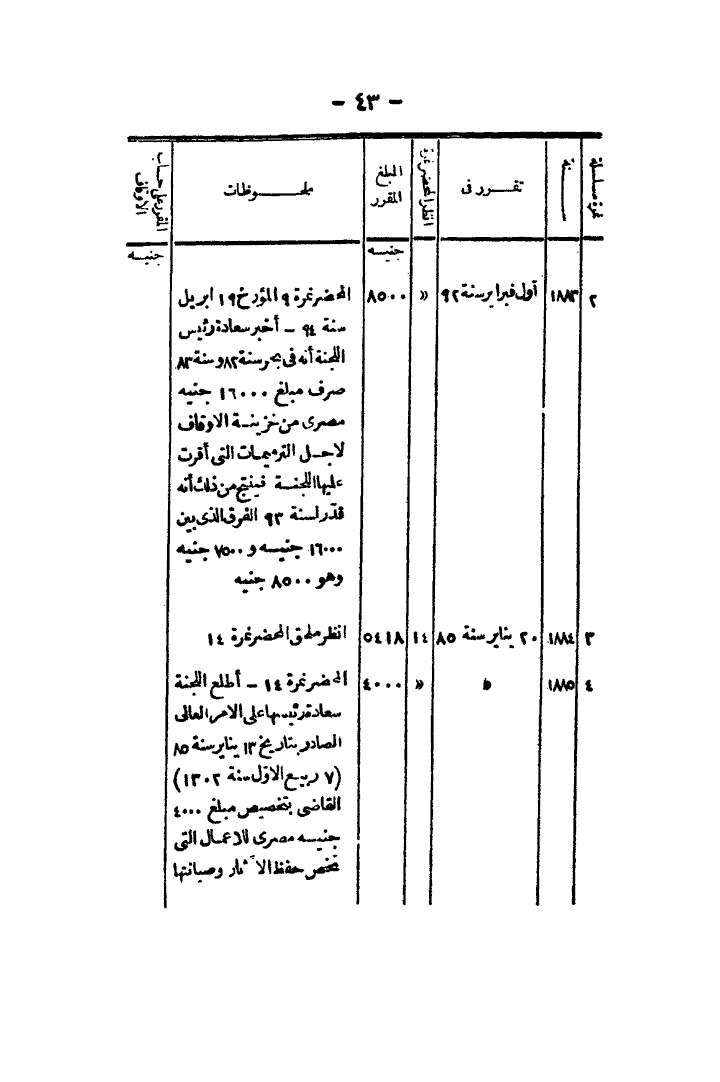 - ٤٣ -
نمرة مسلسلة
سنة
تقرر فى
انظر المحضر نمرة
المبلغ المقرر
ملحوظات
المقرر على حساب الاوقاف
جنيه
جنيه
٢ ١٨٨٣ أول فبراير سنة ٩٢ » ٨٥٠٠ المحضر نمرة ٩ المؤرخ ١٩ ابريل
سنة ٩٤ - أخبر سعادة رئيس
اللجنة أنه فى بحر سنة ٨٢ وسنة ٨٣
صرف مبلغ ١٦٠٠٠ جنيه
مصرى من خزينة الاوقاف
لاجل الترميمات التى أقرت
عليها اللجنة فينتج من ذلك أنه
قدّر لسنة ٩٣ الفرق الذى بين
١٦٠٠٠ جنيه و ٧٥٠٠ جنيه
وهو ٨٥٠٠ جنيه
٣ ١٨٨٤ ٢٠ يناير سنة ٨٥ ١٤ ٥٤١٨ انظر ملحق المحضر نمرة ١٤
٤ ١٨٨٥ » » ٤٠٠٠ المحضر نمرة ١٤ - أطلع اللجنة
سعادة رئيسها على الامر العالى
الصادر بتاريخ ١٣ يناير سنة ٨٥
(٧ ربيع الاول سنة ١٣٠٢)
القاضى بتخصيص مبلغ ٤٠٠٠
جنيه مصرى للاعمال التى
تختص حفظ الآثار وصيانتها